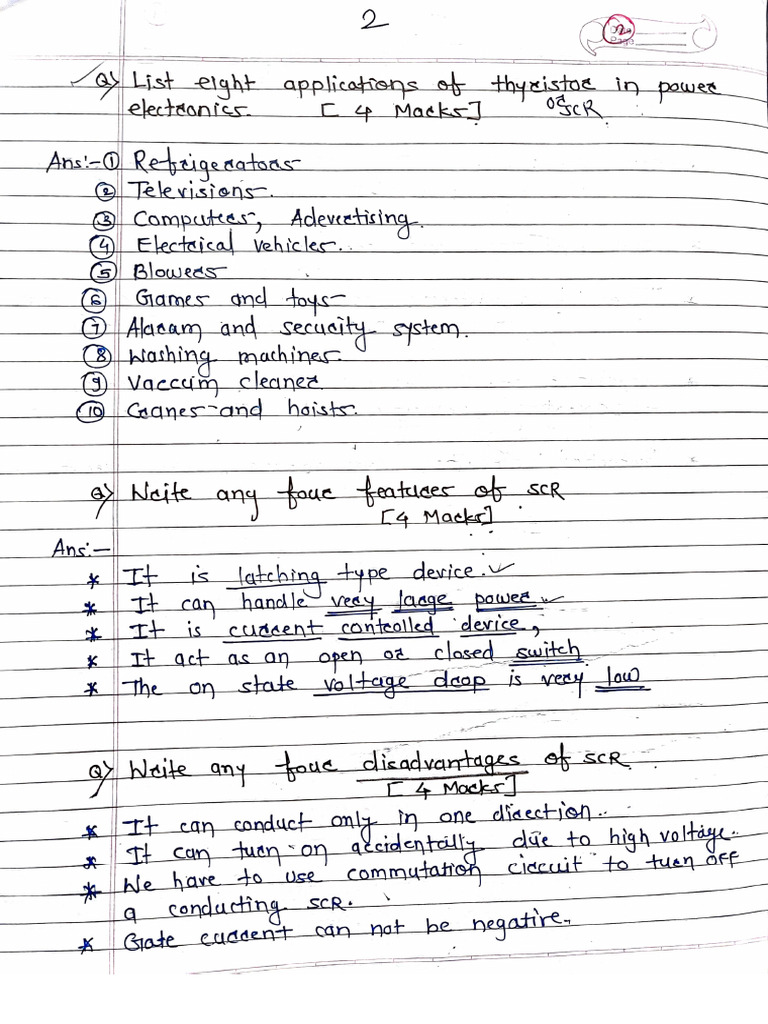 2
2
Q) List eight applications of thyristor in power
electronics. [ 4 Marks] or SCR
Ans:- ① Refrigerators
② Televisions.
③ Computers, Adevertising.
④ Electrical vehicles..
⑤ Blowers
⑥ Games and toys
⑦ Alaram and security system.
⑧ Washing machines.
⑨ Vaccum cleaner
⑩ Cranes and hoists.
Q) Write any four features of SCR
[4 Marks]
Ans:-
* It is latching type device.
* It can handle very large power.
* It is current controlled device,
* It act as an open or closed switch
* The on state voltage drop is very low
Q) Write any four disadvantages of SCR
[ 4 Marks]
* It can conduct only in one direction..
* It can turn on accidentally due to high voltage.
* We have to use commutation circuit to turn off
a conducting SCR.
* Gate current can not be negative.